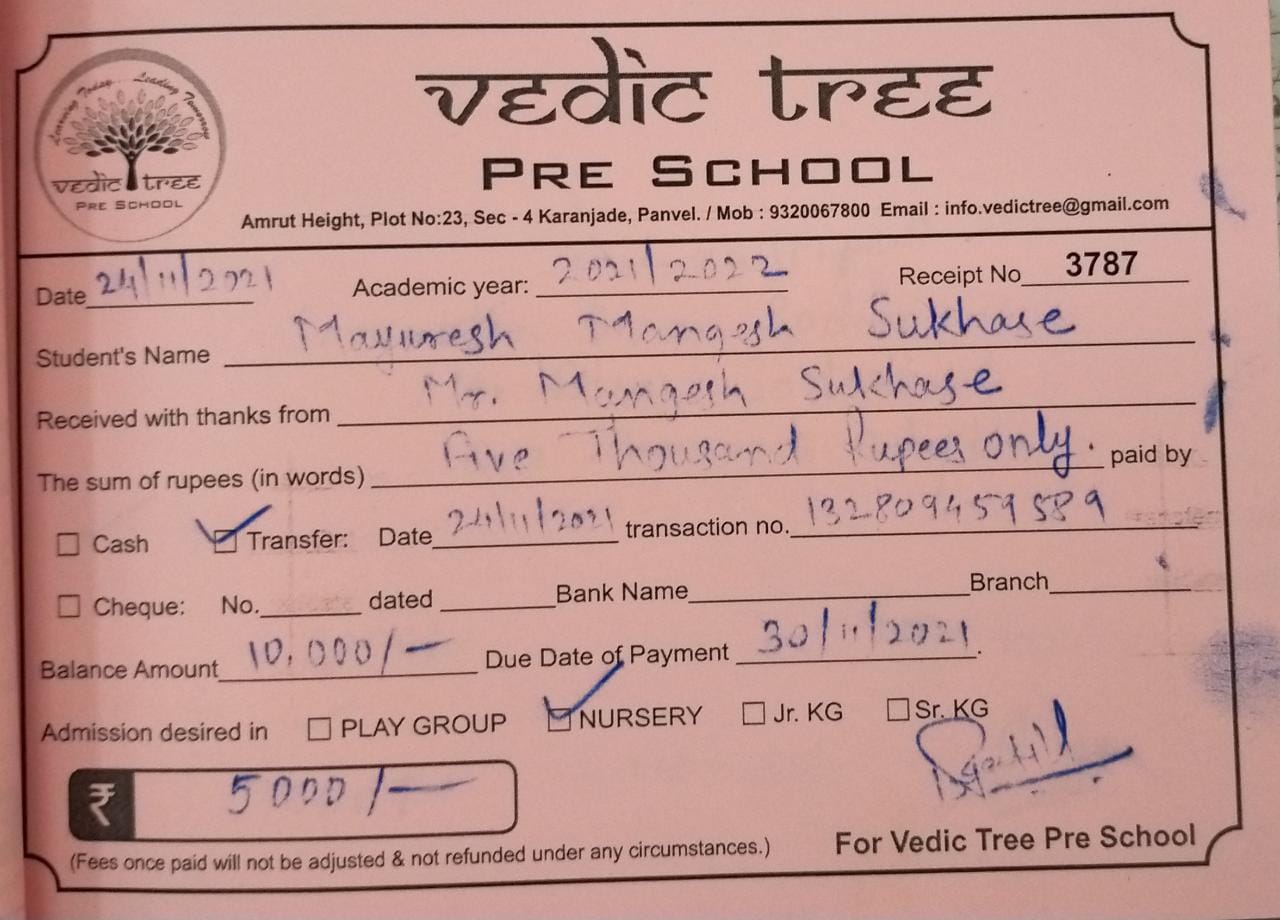 Learning Today... Leading Tomorrow
vedic tree
PRE SCHOOL
vedic tree
PRE SCHOOL
Amrut Height, Plot No:23, Sec - 4 Karanjade, Panvel. / Mob : 9320067800 Email : info.vedictree@gmail.com
Date 24/11/2021 Academic year: 2021/2022 Receipt No 3787
Student's Name Mayuresh Mangesh Sukhase
Received with thanks from Mr. Mangesh Sukhase
The sum of rupees (in words) Five Thousand Rupees only. paid by
Cash Transfer: Date 24/11/2021 transaction no. 132809459589
Cheque: No. dated Bank Name Branch
Balance Amount 10,000/- Due Date of Payment 30/11/2021.
Admission desired in PLAY GROUP NURSERY Jr. KG Sr. KG
₹ 5000/-
(Fees once paid will not be adjusted & not refunded under any circumstances.) For Vedic Tree Pre School